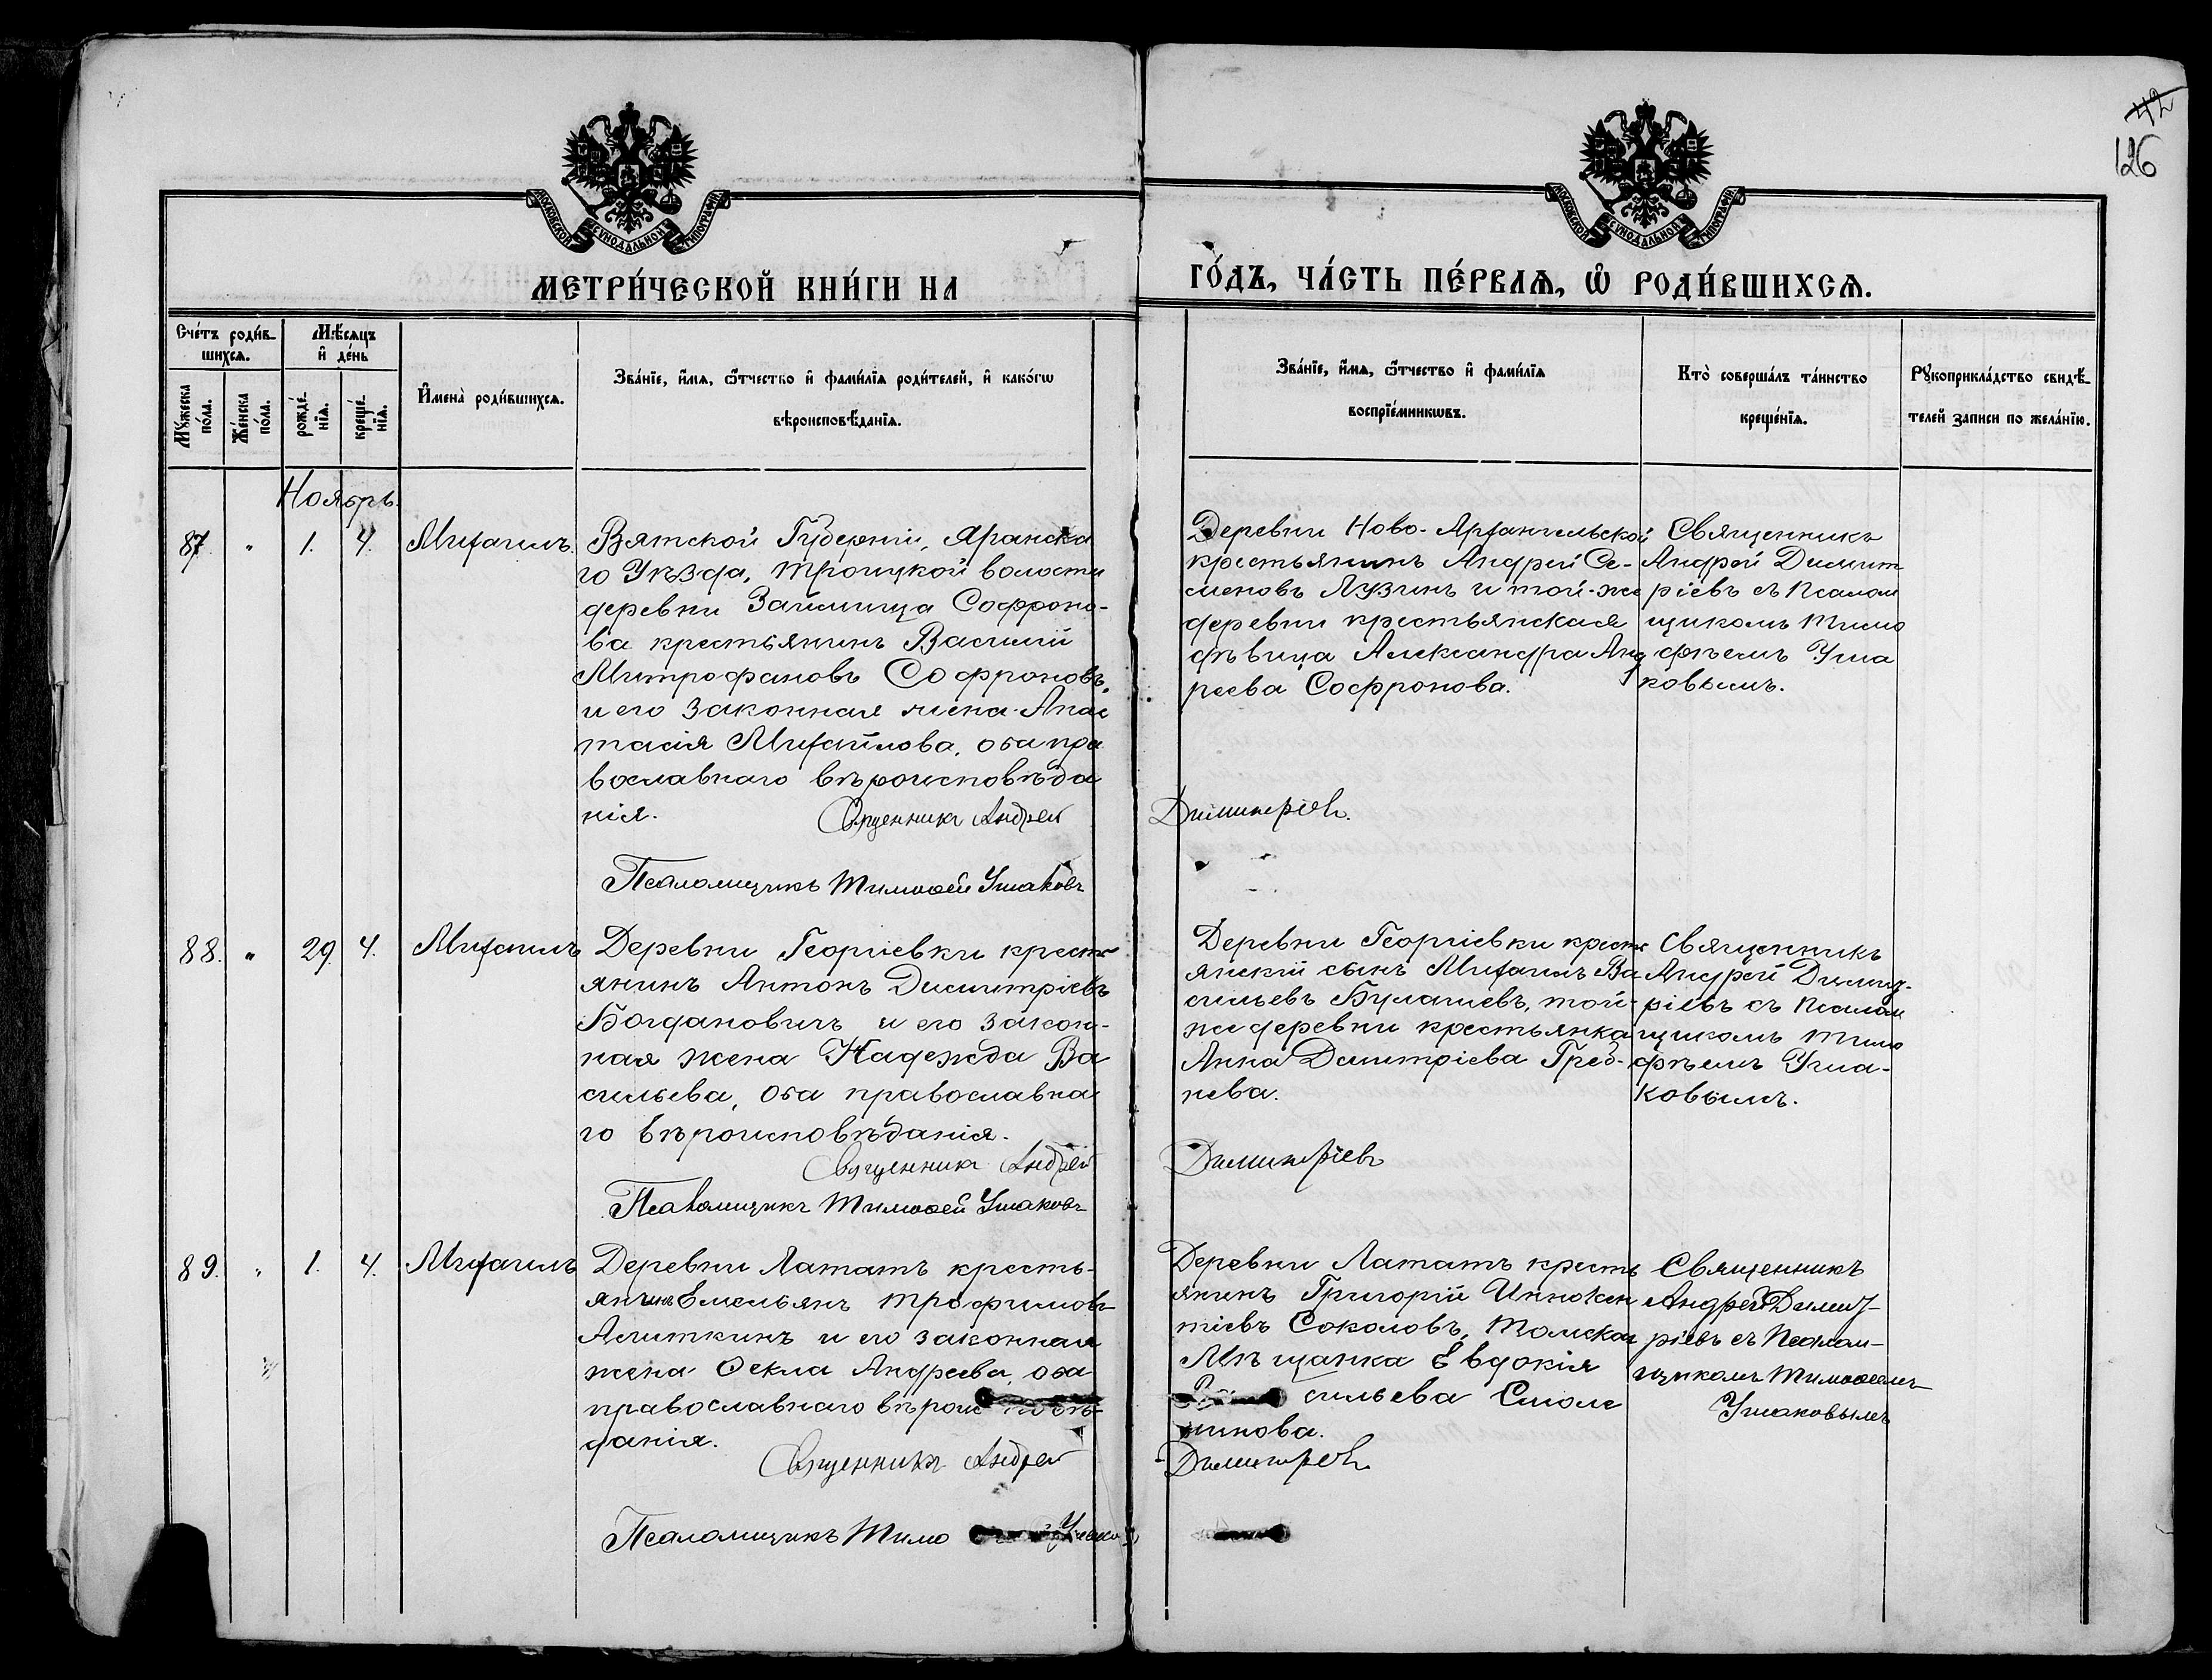 42
126
МОСКОВСКОЙ СѴНОДАЛЬНОЙ ТИПОГРАФІИ
МОСКОВСКОЙ СѴНОДАЛЬНОЙ ТИПОГРАФІИ
МЕТРИ́ЧЕСКОЙ КНИ́ГИ НА
ГО́ДЪ, ЧА́СТЬ ПЕ́РВАѦ, Ѡ҆ РОДИ́ВШИХСѦ.
Сче́тъ роди́в-
шихсѧ.
Мꙋ́жеска по́ла.
Же́нска по́ла.
Мѣ́сѧцъ
и҆ де́нь
рожде́-
нїѧ.
креще́-
нїѧ.
И҆мена̀ роди́вшихсѧ.
Зва́нїе, и҆́мѧ, ѻ҆́тчество и҆ фами́лїѧ роди́телей, и҆ како́гѡ
вѣроисповѣ́данїѧ.
Зва́нїе, и҆́мѧ, ѻ҆́тчество и҆ фами́лїѧ
воспрїе́мникѡвъ.
Кто̀ соверша́лъ та́инство
креще́нїѧ.
Рꙋкоприкла́дство свидѣ́-
телей записи по жела́нїю.
Ноябрь.
87. " 1. 4. Михаилъ.
Вятской Губерніи, Яранска
го Уѣзда, Троицкой волости
деревни Займища Софроно-
ва крестьянинъ Василій
Митрофановъ Софроновъ,
и его законная жена Анас
тасія Михайлова, оба пра
вославнаго вѣроисповѣда
нія.
Священникъ Андрей
Димитріевъ.
Псаломщикъ Тимоѳей Ушаковъ
Деревни Ново-Архангельской
крестьянинъ Андрей Се-
меновъ Лузинъ и той-же
деревни крестьянская
дѣвица Александра Анд
реева Софронова.
Священникъ
Андрей Димит
ріевъ съ Псалом
щикомъ Тимо
фѣемъ Уша
ковымъ.
88. " 29. 4. Михаилъ
Деревни Георгіевки кресть
янинъ Антонъ Димитріевъ
Богдановичъ и его закон-
ная жена Надежда Ва
сильева, оба православна
го вѣроисповѣданія.
Священникъ Андрей
Димитріевъ
Псаломщикъ Тимоѳей Ушаковъ
Деревни Георгіевки кресть
янскій сынъ Михаилъ Ва
сильевъ Булашевъ, той-
же деревни крестьянка
Анна Димитріева Греб-
нева.
Священникъ
Андрей Димит-
ріевъ съ Псалом
щикомъ Тимо
фѣемъ Уша-
ковымъ.
89. " 1. 4. Михаилъ
Деревни Лататъ кресть-
янинъ Емельянъ Трофимовъ
Агиткинъ и его законная
жена Ѳекла Андреева, оба
православнаго вѣроисповѣ-
данія.
Священникъ Андрей
Димитріевъ
Псаломщикъ Тимо Ушаковъ
Деревни Лататъ кресть
янинъ Григорій Иннокен
тіевъ Соколовъ, Томская
Мѣщанка Евдокія
сильева Смоле
никова.
Священникъ
Андрей Димит-
ріевъ съ Псалом-
щикомъ Тимоѳеемъ
Ушаковымъ